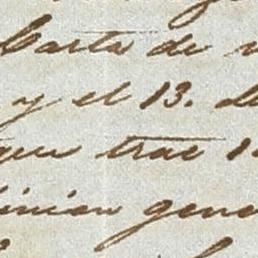 Carta de
y el 13. de
que trae 1
inion gene